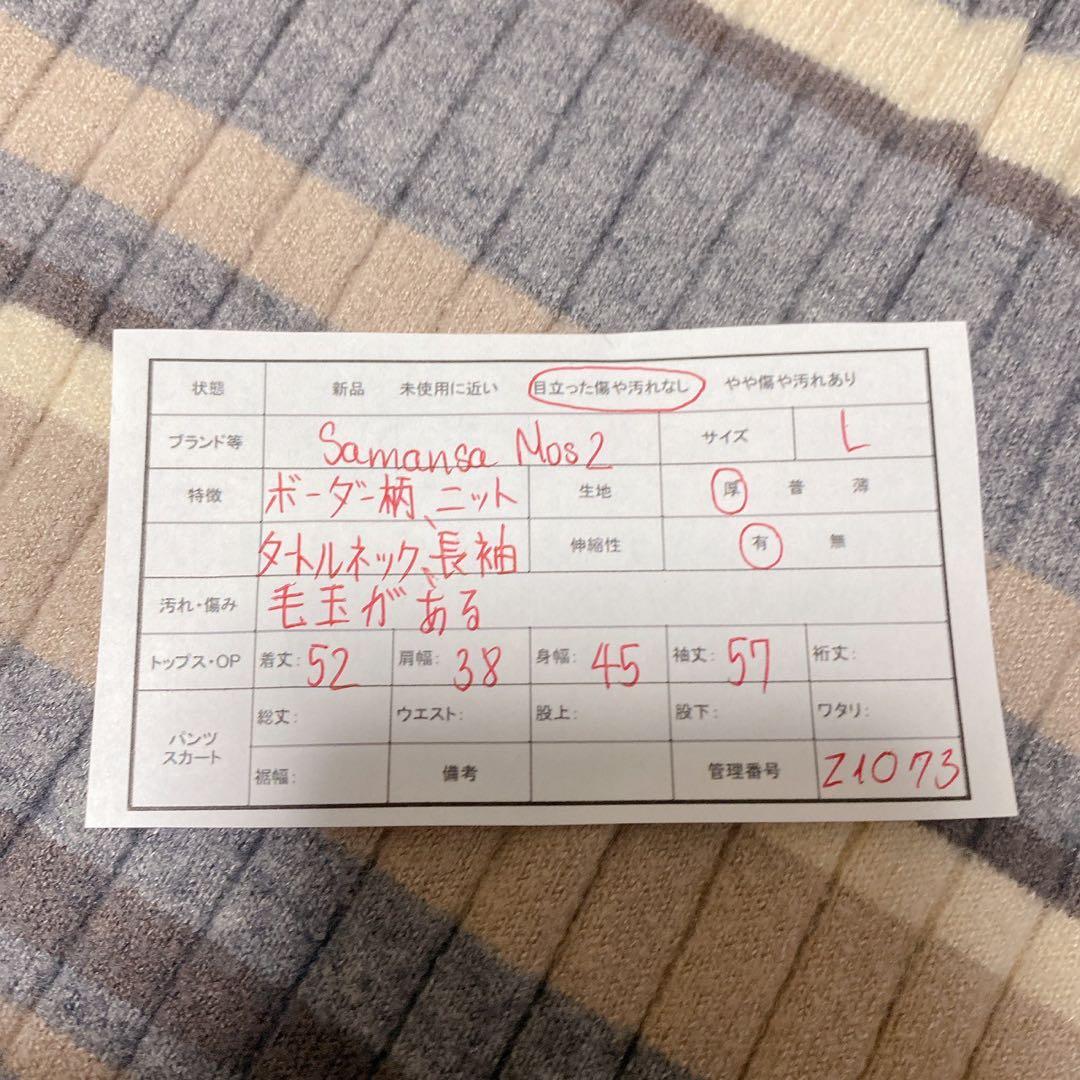 状態 新品 未使用に近い 目立った傷や汚れなし やや傷や汚れあり
ブランド等 Samansa Mos2 サイズ L
特徴 ボーダー柄、ニット 生地 厚 普 薄
タートルネック、長袖 伸縮性 有 無
汚れ・傷み 毛玉がある
トップス・OP 着丈: 52 肩幅: 38 身幅: 45 袖丈: 57 裄丈:
パンツ スカート 総丈: ウエスト: 股上: 股下: ワタリ:
裾幅: 備考 管理番号 Z1073